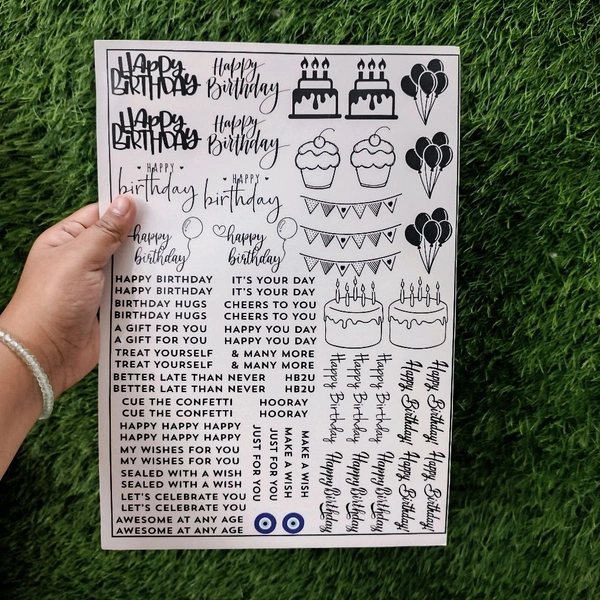 Happy Birthday
Happy Birthday
Happy Birthday
Happy Birthday
HAPPY birthday
HAPPY birthday
happy birthday
happy birthday
HAPPY BIRTHDAY
IT'S YOUR DAY
HAPPY BIRTHDAY
IT'S YOUR DAY
BIRTHDAY HUGS
CHEERS TO YOU
BIRTHDAY HUGS
CHEERS TO YOU
A GIFT FOR YOU
HAPPY YOU DAY
A GIFT FOR YOU
HAPPY YOU DAY
TREAT YOURSELF
& MANY MORE
TREAT YOURSELF
& MANY MORE
BETTER LATE THAN NEVER
HB2U
BETTER LATE THAN NEVER
HB2U
CUE THE CONFETTI
HOORAY
CUE THE CONFETTI
HOORAY
HAPPY HAPPY HAPPY
HAPPY HAPPY HAPPY
MY WISHES FOR YOU
MY WISHES FOR YOU
SEALED WITH A WISH
SEALED WITH A WISH
LET'S CELEBRATE YOU
LET'S CELEBRATE YOU
AWESOME AT ANY AGE
AWESOME AT ANY AGE
JUST FOR YOU
JUST FOR YOU
MAKE A WISH
MAKE A WISH
Happy Birthday
Happy Birthday
Happy Birthday
Happy Birthday!
Happy Birthday!
Happy Birthday
Happy Birthday
Happy Birthday
Happy Birthday!
Happy Birthday!